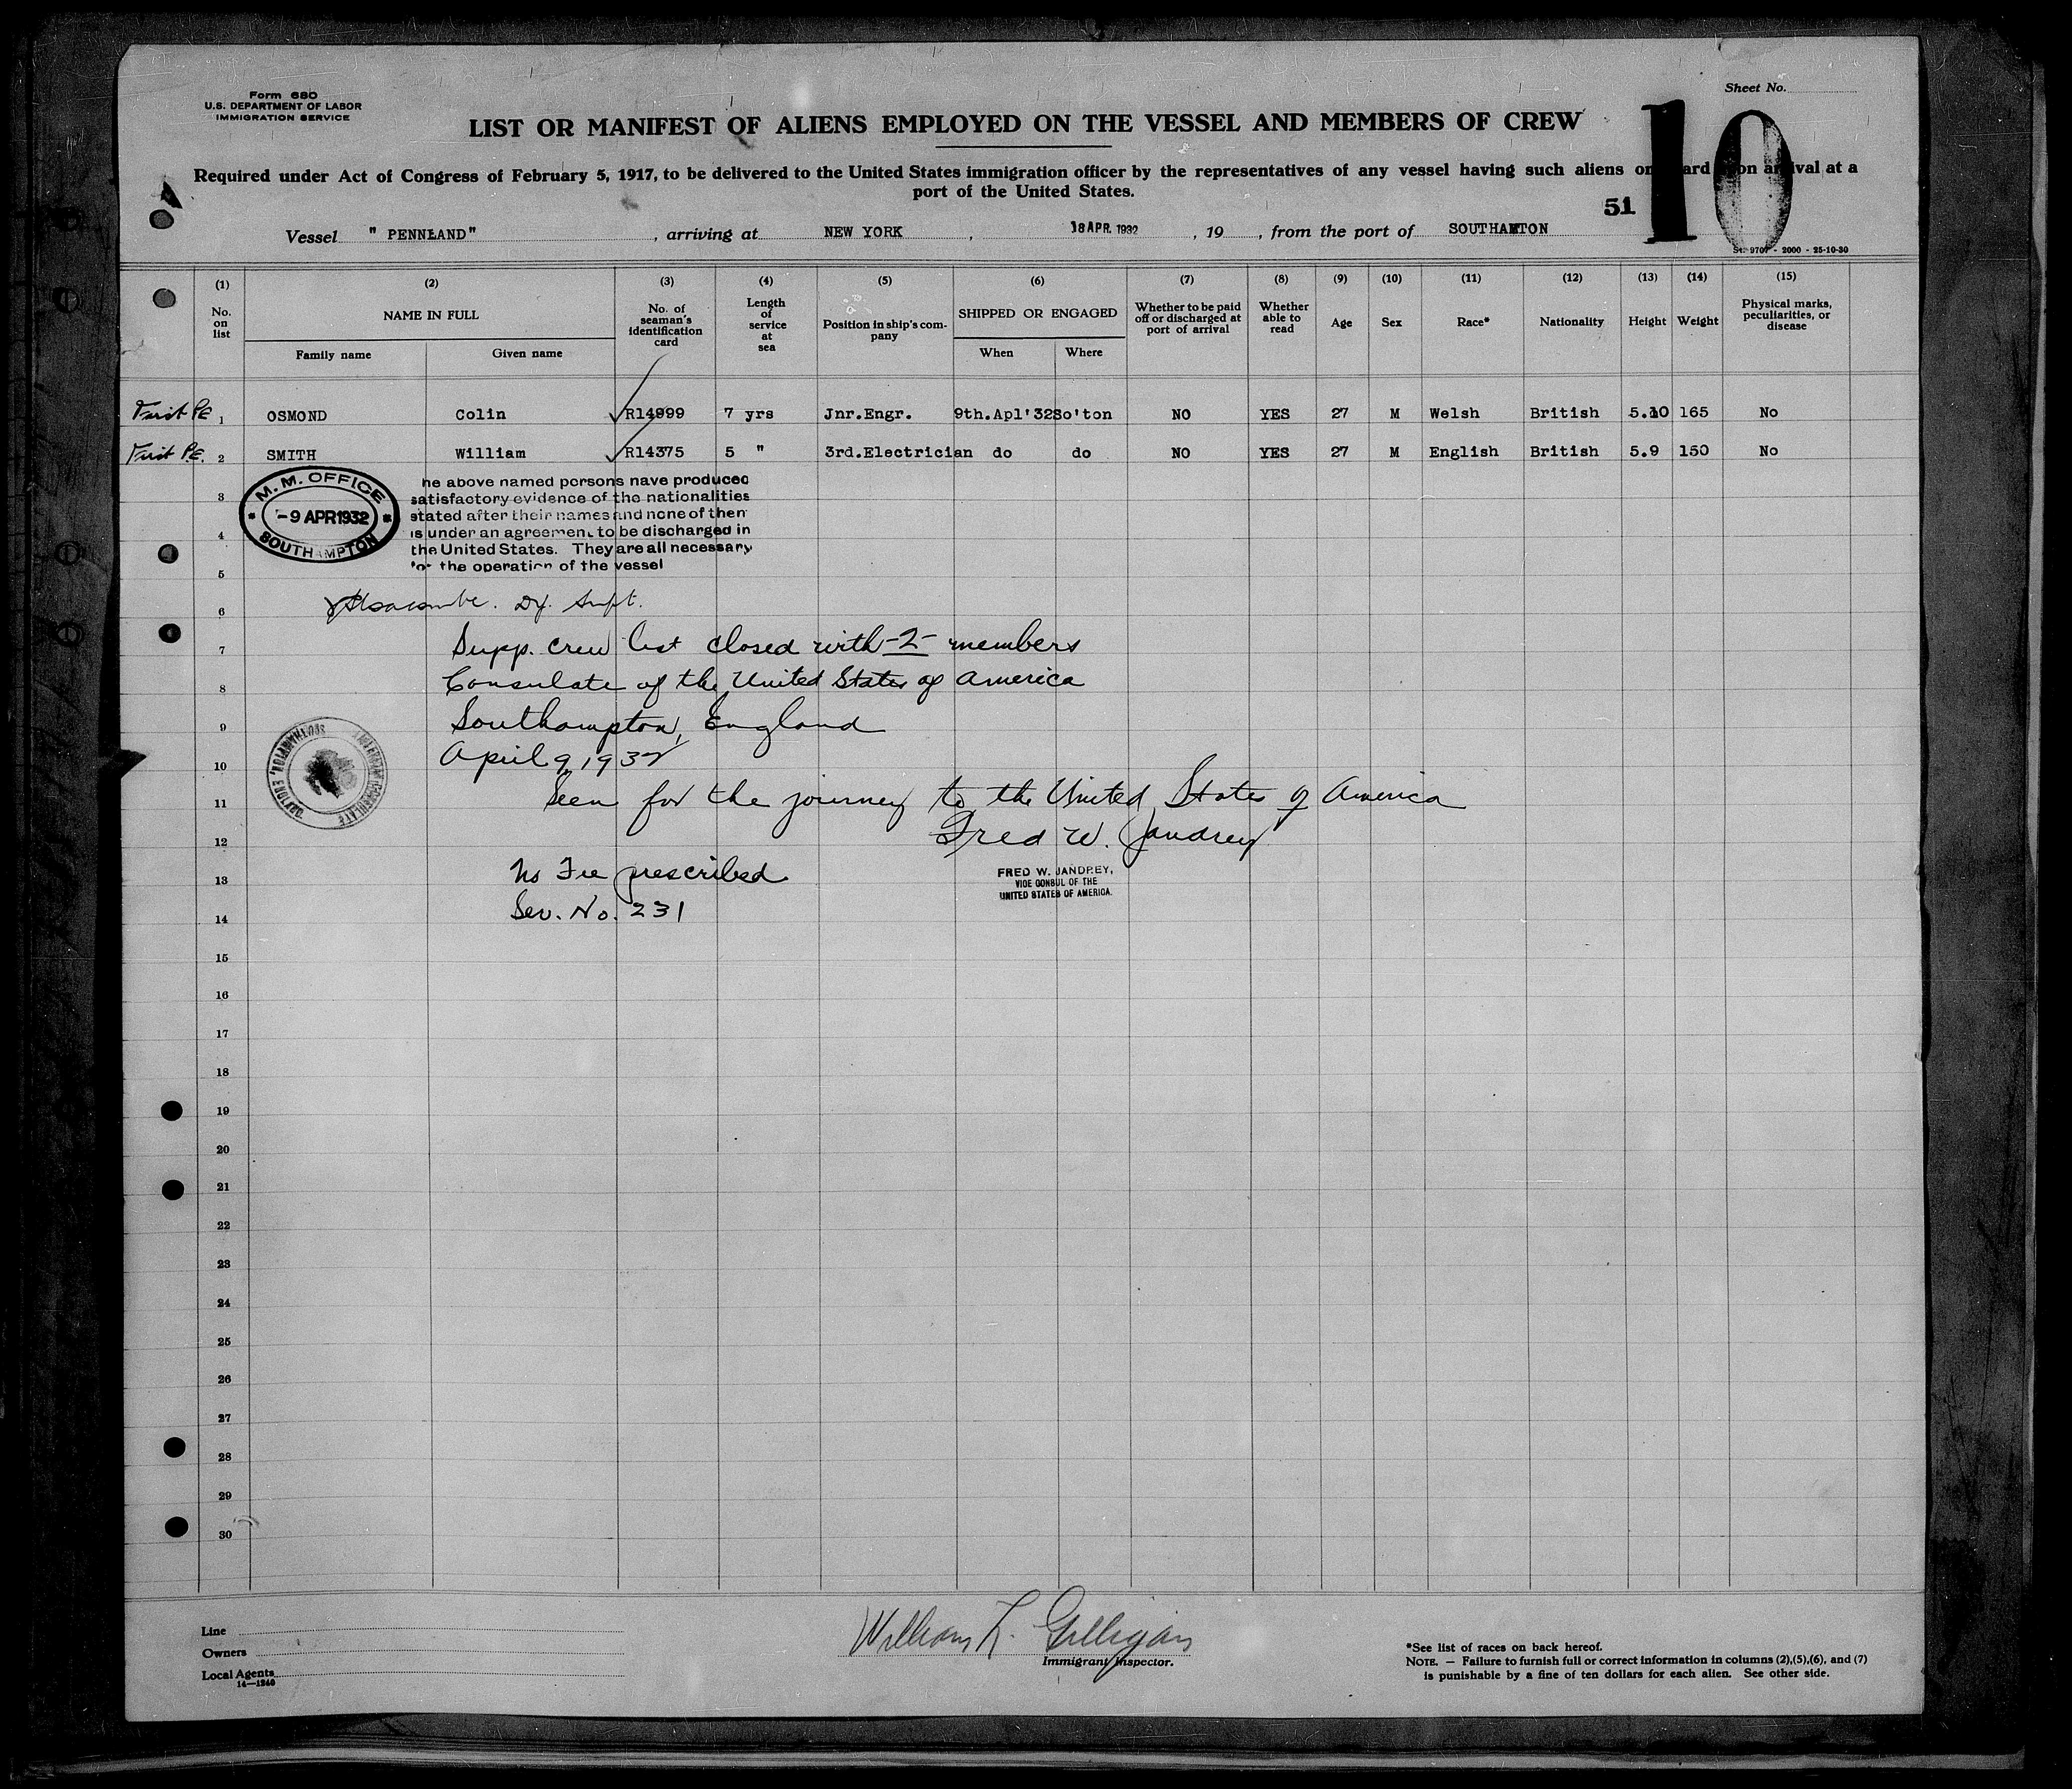 Form 680
U.S. DEPARTMENT OF LABOR
IMMIGRATION SERVICE
Sheet No.
LIST OR MANIFEST OF ALIENS EMPLOYED ON THE VESSEL AND MEMBERS OF CREW
10
Required under Act of Congress of February 5, 1917, to be delivered to the United States immigration officer by the representatives of any vessel having such aliens on board upon arrival at a
port of the United States.
51
Vessel " PENNLAND" , arriving at NEW YORK , 18 APR. 1932 , 19 , from the port of SOUTHAMTON
St. 9707 - 2000 - 25-10-30
(1) (2) (3) (4) (5) (6) (7) (8) (9) (10) (11) (12) (13) (14) (15)
No. on list NAME IN FULL Family name Given name No. of seaman's identification card Length of service at sea Position in ship's company SHIPPED OR ENGAGED When Where Whether to be paid off or discharged at port of arrival Whether able to read Age Sex Race* Nationality Height Weight Physical marks, peculiarities, or disease
First PE 1 OSMOND Colin R14999 7 yrs Jnr.Engr. 9th.Apl'32 So'ton NO YES 27 M Welsh British 5.10 165 No
First P.E. 2 SMITH William R14375 5 " 3rd.Electrician do do NO YES 27 M English British 5.9 150 No
M.M. OFFICE
-9 APR 1932
SOUTHAMPTON
he above named persons have produced
satisfactory evidence of the nationalities
stated after their names and none of them
is under an agreement to be discharged in
the United States. They are all necessary
for the operation of the vessel
3
4
5
6 Dy. Supt.
7 Supp. crew list closed with -2- members
8 Consulate of the United States of America
9 Southampton, England
10 April 9, 1932
AMERICAN CONSULATE
SOUTHAMPTON, ENGLAND
11 Seen for the journey to the United States of America
12 Fred W. Jandrey
FRED W. JANDREY,
VICE CONSUL OF THE
UNITED STATES OF AMERICA.
13 No Fee prescribed
14 Sev. No. 231
15
16
17
18
19
20
21
22
23
24
25
26
27
28
29
30
Line
Owners
Local Agents
14—1240
William L. Gilligan
Immigrant Inspector.
*See list of races on back hereof.
NOTE. — Failure to furnish full or correct information in columns (2),(5),(6), and (7)
is punishable by a fine of ten dollars for each alien. See other side.